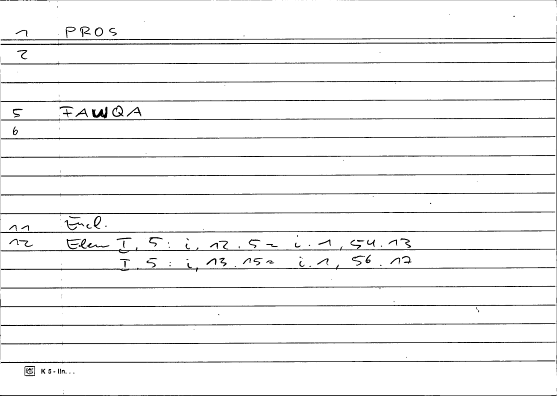 1 PROS
2
5 FAWQA
6
11 Eucl.
12 Elem I, 5: i, 12.5 = i.1, 54.13
I.5: i, 13.15 = i.1, 56.17
K 5 - lin...